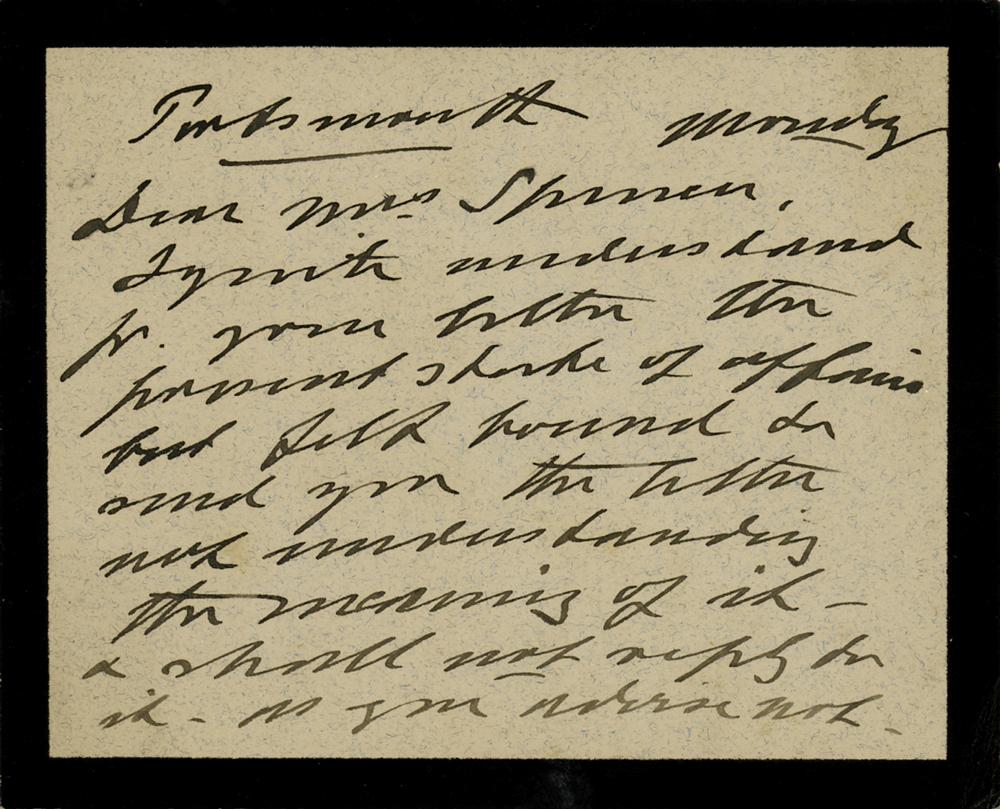 Portsmouth Monday
Dear Mrs Spencer,
I quite understand
fr. your letter the
present state of affairs
but felt bound to
send you the letter
not understanding
the meaning of it –
& shall not reply to
it - as you advise not.